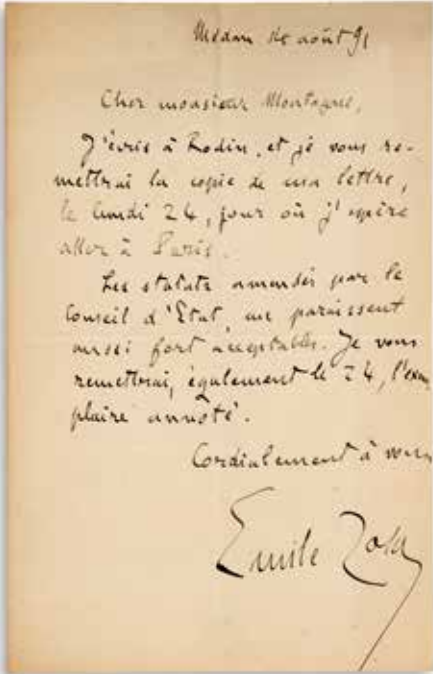 Médan 15 août 91
Cher monsieur Montagne,
J'écris à Rodin, et je vous re-
mettrai la copie de ma lettre,
le lundi 24, jour où j'espère
aller à Paris.
Les statuts amendés par le
Conseil d'Etat, me paraissent
aussi fort acceptables. Je vous
remettrai, également le 24, l'exem
plaire annoté.
Cordialement à vous
Emile Zola